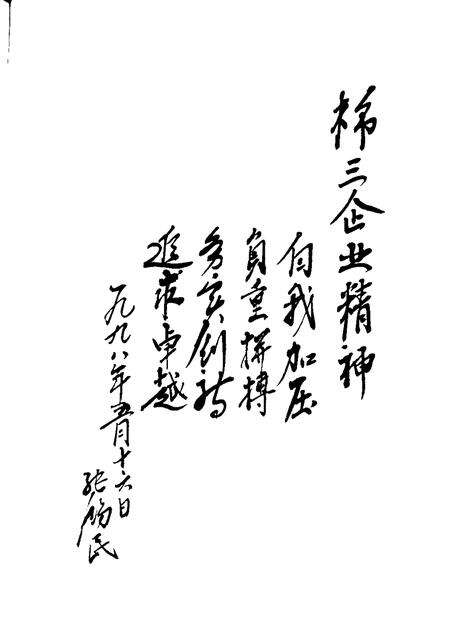 棉三企业精神
自我加压
負重拼搏
务实创新
追求卓越
一九九八年五月十六日